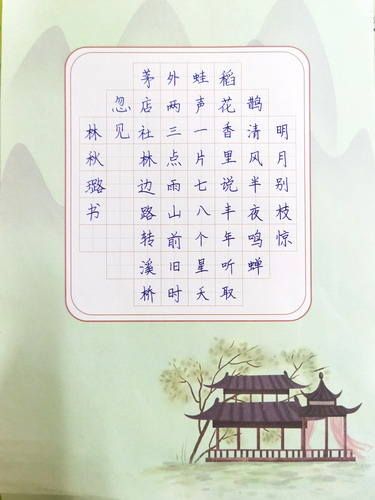 明月别枝惊
鹊清风半夜鸣蝉
稻花香里说丰年听取
蛙声一片七八个星天
外两三点雨山前旧时
茅店社林边路转溪桥
忽见
林秋璐书